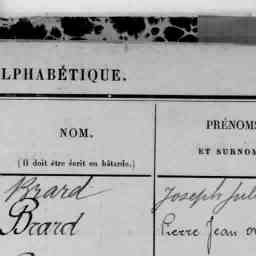 LPHABÉTIQUE.
NOM. PRÉNOMS
(Il doit être écrit en bâtarde.) ET SURNOM
Brard Joseph Jul
Brard Pierre Jean